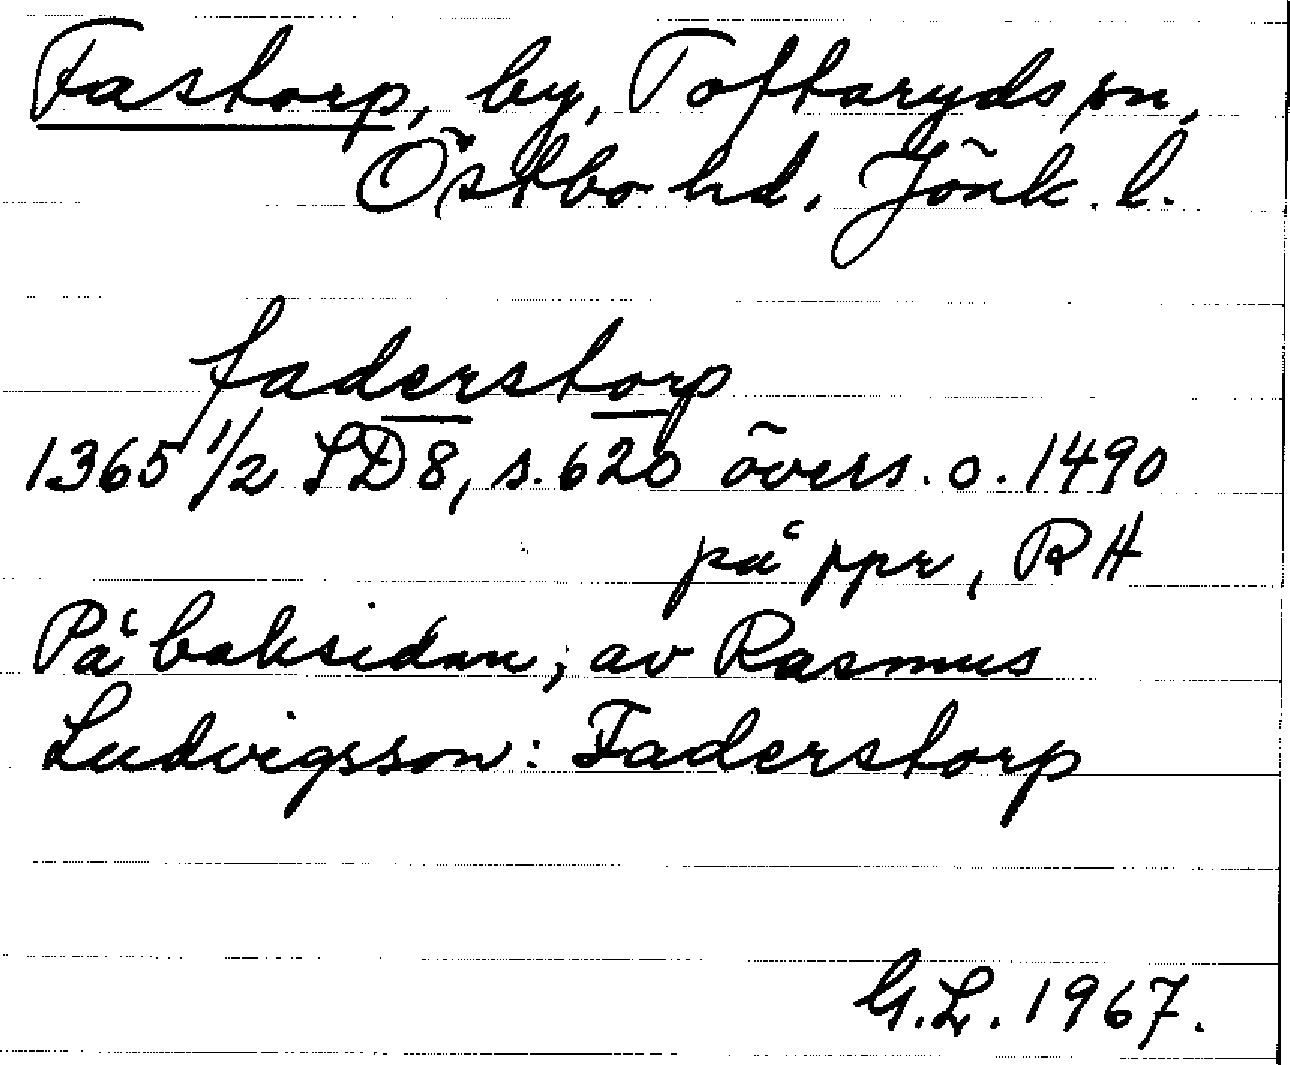 Fastorp, by, Toftaryds sn,
Östbo hd. Jönk. l.
faderstorp
1365 1/2 SD8, s. 620 övers. o. 1490
på ppr, RH
På baksidan, av Rasmus
Ludvigsson: Faderstorp
G.L. 1967.